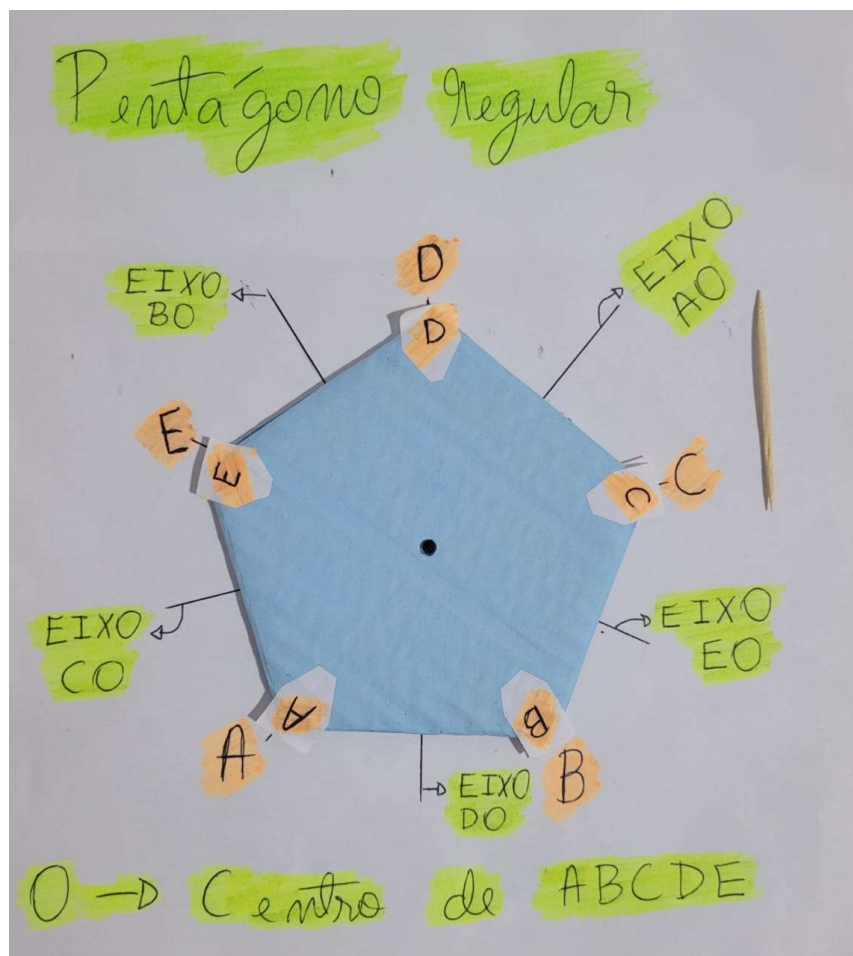 Pentágono regular
D
EIXO
AO
EIXO
BO
D
E
E
C
C
EIXO
EO
EIXO
CO
A
A
B
B
EIXO
DO
O → Centro de ABCDE